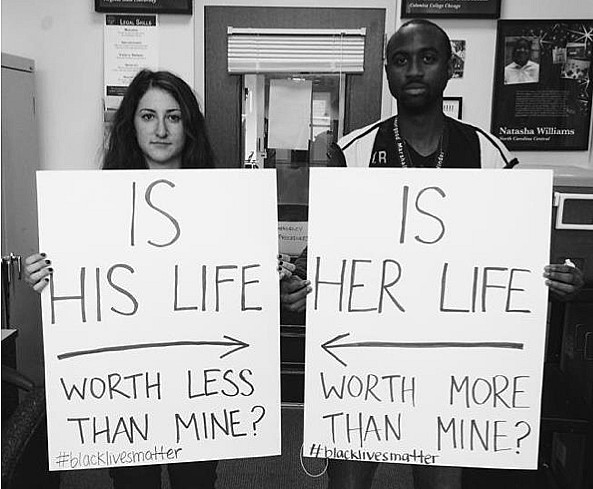 LEGAL SKILLS
Columbia College Chicago
Natasha Williams
North Carolina Central
IS
HIS LIFE
WORTH LESS
THAN MINE?
#blacklivesmatter
IS
HER LIFE
WORTH MORE
THAN MINE?
#blacklivesmatter